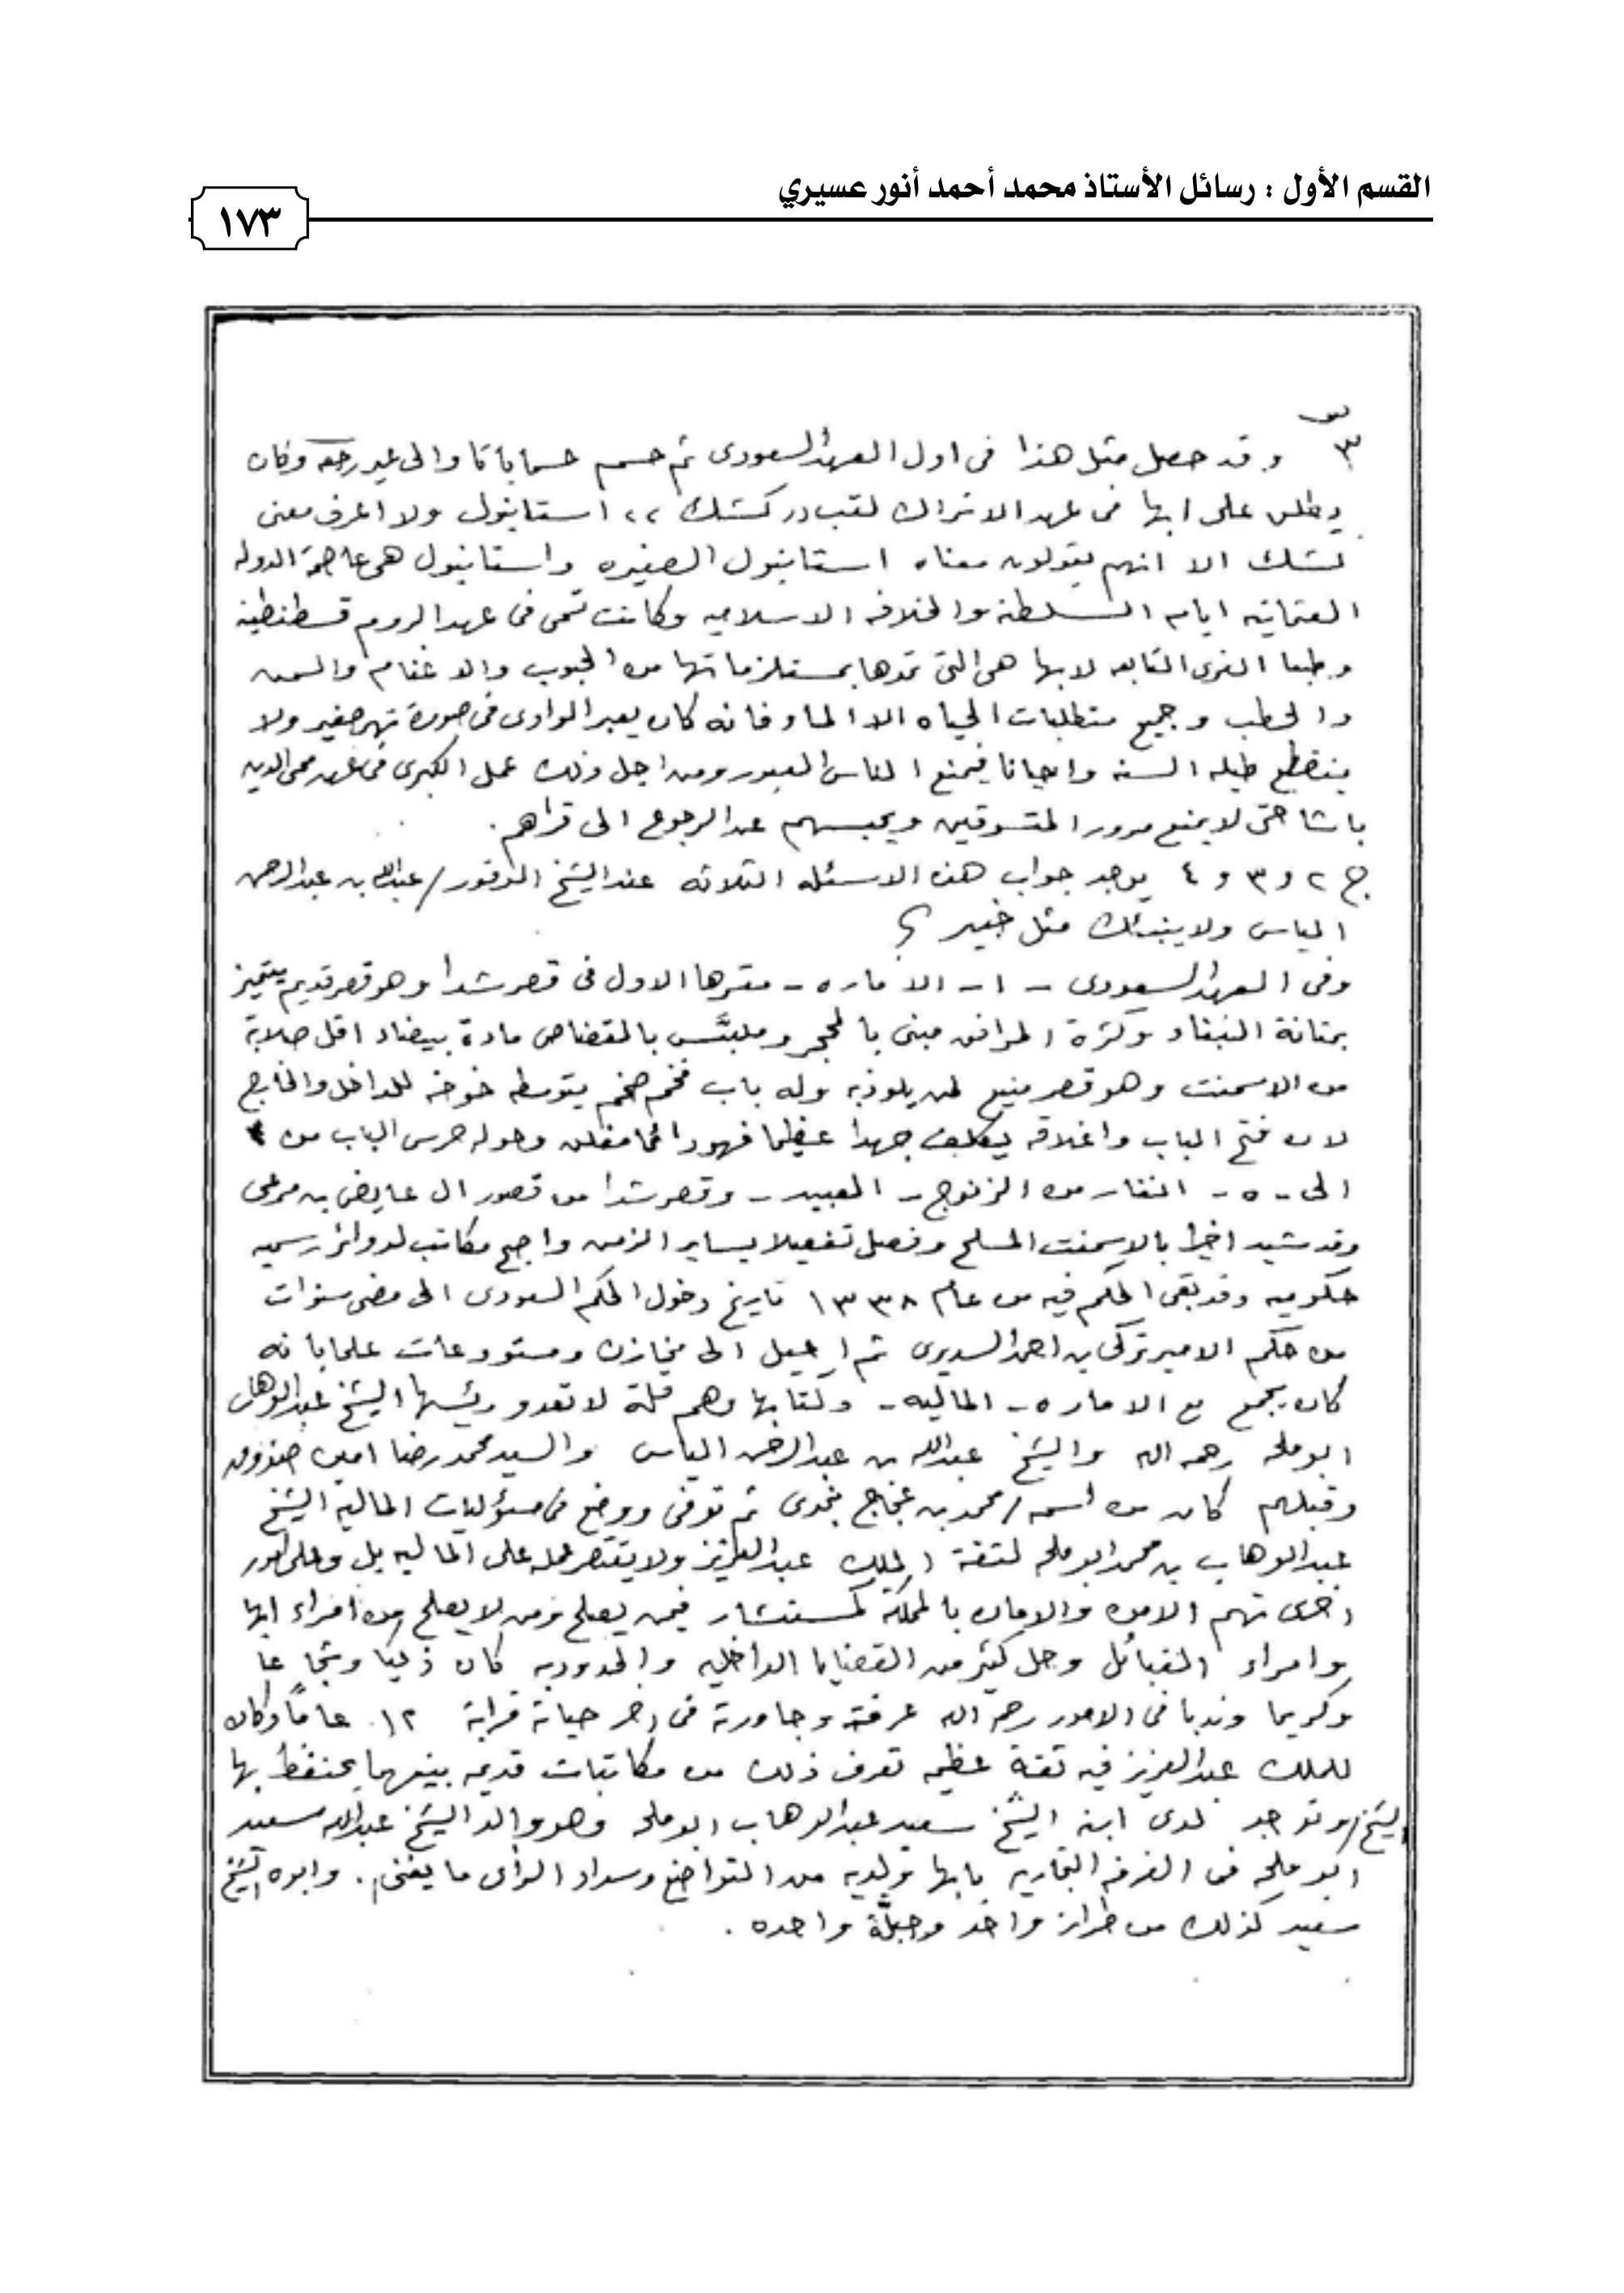 القسم الأول : رسائل الأستاذ محمد أحمد أنور عسيري
١٧٣
ص ٣
وقد حصل مثل هذا فى اول العهد السعودى ثم حسم حسما باتا والى غير رجعه وكان
يطلق على ابها فى عهد الاتراك لقب ,, كشك ،، استانبول ولا اعرف معنى
كشك الا انهم يقولون معناه استانبول الصغيره واستانبول هى عاصمة الدوله
العثمانيه ايام السلطنه والخلافه الاسلاميه وكانت تسمى فى عهد الروم قسطنطينه
وطبعا القرى التابعه لابها هى التى تمدها بمستلزماتها من الحبوب والاغنام والسمن
والحطب وجميع متطلبات الحياه الا الماء فانه كان يعبر الوادى فى صورة نهر صغير ولا
ينقطع طيله السنه واحيانا فيمنع الناس العبور ومن اجل ذلك عمل الكبرى فى عهد محى الدين
باشا حتى لا يمنع مرور المتسوقين ويحبسهم عن الرجوع الى قراهم .
ج ٢ و ٣ و ٤ يوجد جواب هذه الاسئله الثلاثه عند الشيخ الوقور / عبدالله بن عبدالرحمن
الياس ولا ينبئك مثل خبير ؟
وفى العهد السعودى - ١ - الاماره - مقرها الاول فى قصر شدا وهو قصر قديم يتميز
بمتانة البناء وكثرة المرافق مبنى بالحجر وملبَّس بالقضاض مادة بيضاء اقل صلابة
من الاسمنت وهو قصر منيع لمن يلوذ به وله باب فخم ضخم يتوسطه خوخه للداخل والخارج
لان فتح الباب واغلاقه يكلف جهدا عظيما فهو دائما مغلق وحوله حرس الباب من ٤
الى - ٥ - انفار من الزنوج - العبيد - وقصر شدا من قصور ال عايض بن مرعى
وقد شيد اخيرا بالاسمنت المسلح وفصل تفصيلا يساير الزمن واصبح مكاتب لدوائر رسميه
حكوميه وقد بقى الحكم فيه من عام ١٣٣٨ تاريخ دخول الحكم السعودى الى مضى سنوات
من حكم الامير تركى بن احمد السديرى ثم احيل الى مخازن ومستودعات علما بانه
كان يجمع مع الاماره - الماليه - وكتابها وهم قلة لا تعدو رئيسها الشيخ عبدالوهاب
ابوملحه رحمه الله والشيخ عبدالله بن عبدالرحمن الياس والسيد محمد رضا امين صندوق
وقبلهم كان من اسمه / محمد بن عجاج نجدى ثم توفى ووضع فى مسؤليات المالية الشيخ
عبدالوهاب بن محمد ابوملحه لثقة الملك عبدالعزيز ولا يقتصر عمله على الماليه بل وعلى امور
اخرى تهم الامن والامان بالمملكة كمستشار فيمن يصلح ومن لا يصلح من امراء ابها
وامراء القبائل وحل كثير من القضايا الداخليه والحدوديه كان ذكيا وشجاعا
وكريما وندبا فى الامور رحمه الله عرفته وجاورته فى اخر حياته قرابة ١٢ عاماً وكان
للملك عبدالعزيز فيه ثقة عظيمه تعرف ذلك من مكاتبات قديمه بينهما يحتفظ بها
الشيخ / وتوجد لدى ابنه الشيخ سعيد عبدالوهاب ابوملحه وهو والد الشيخ عبدالله سعيد
ابوملحه فى الغرفه التجاريه بابها ولديه من التواضع وسداد الرأى ما يغنى . وابوه الشيخ
سعيد كذلك من طراز واحد وجبلَّة واحده .